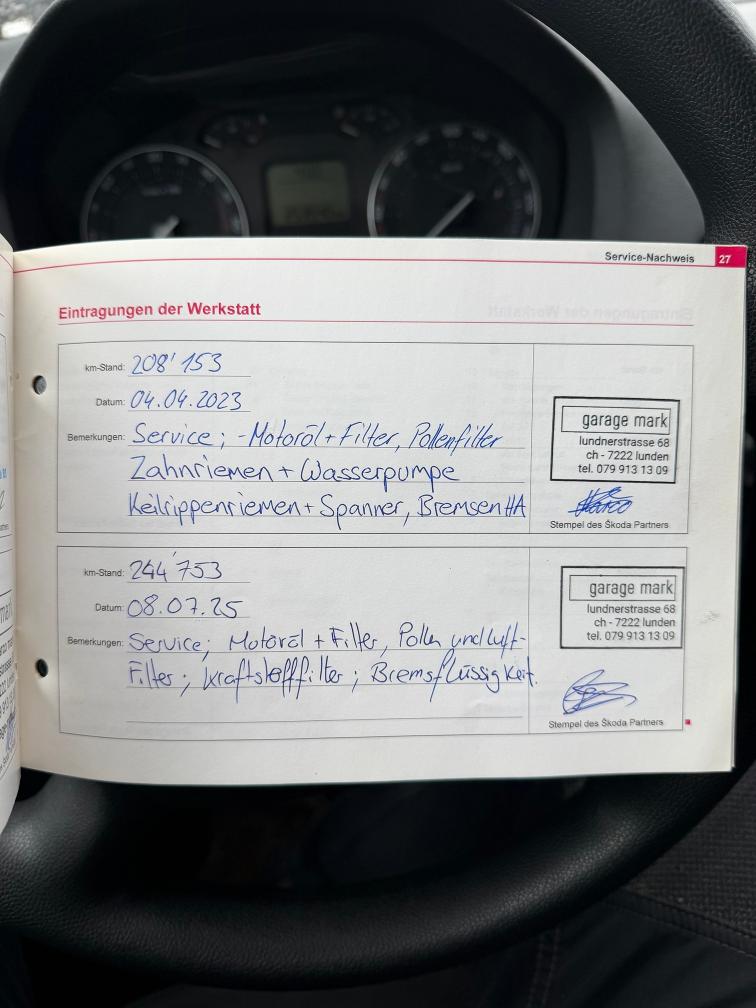 Service-Nachweis 27
Eintragungen der Werkstatt
km-Stand: 208'153
Datum: 04.04.2023
Bemerkungen: Service; -Motoröl + Filter, Pollenfilter
Zahnriemen + Wasserpumpe
Keilrippenriemen + Spanner, Bremsen HA
garage mark
lundnerstrasse 68
ch - 7222 lunden
tel. 079 913 13 09
Stempel des Škoda Partners
km-Stand: 244'753
Datum: 08.07.25
Bemerkungen: Service; Motoröl + Filter, Pollen und Luft-
Filter; Kraftstofffilter; Bremsflüssigkeit.
garage mark
lundnerstrasse 68
ch - 7222 lunden
tel. 079 913 13 09
Stempel des Škoda Partners